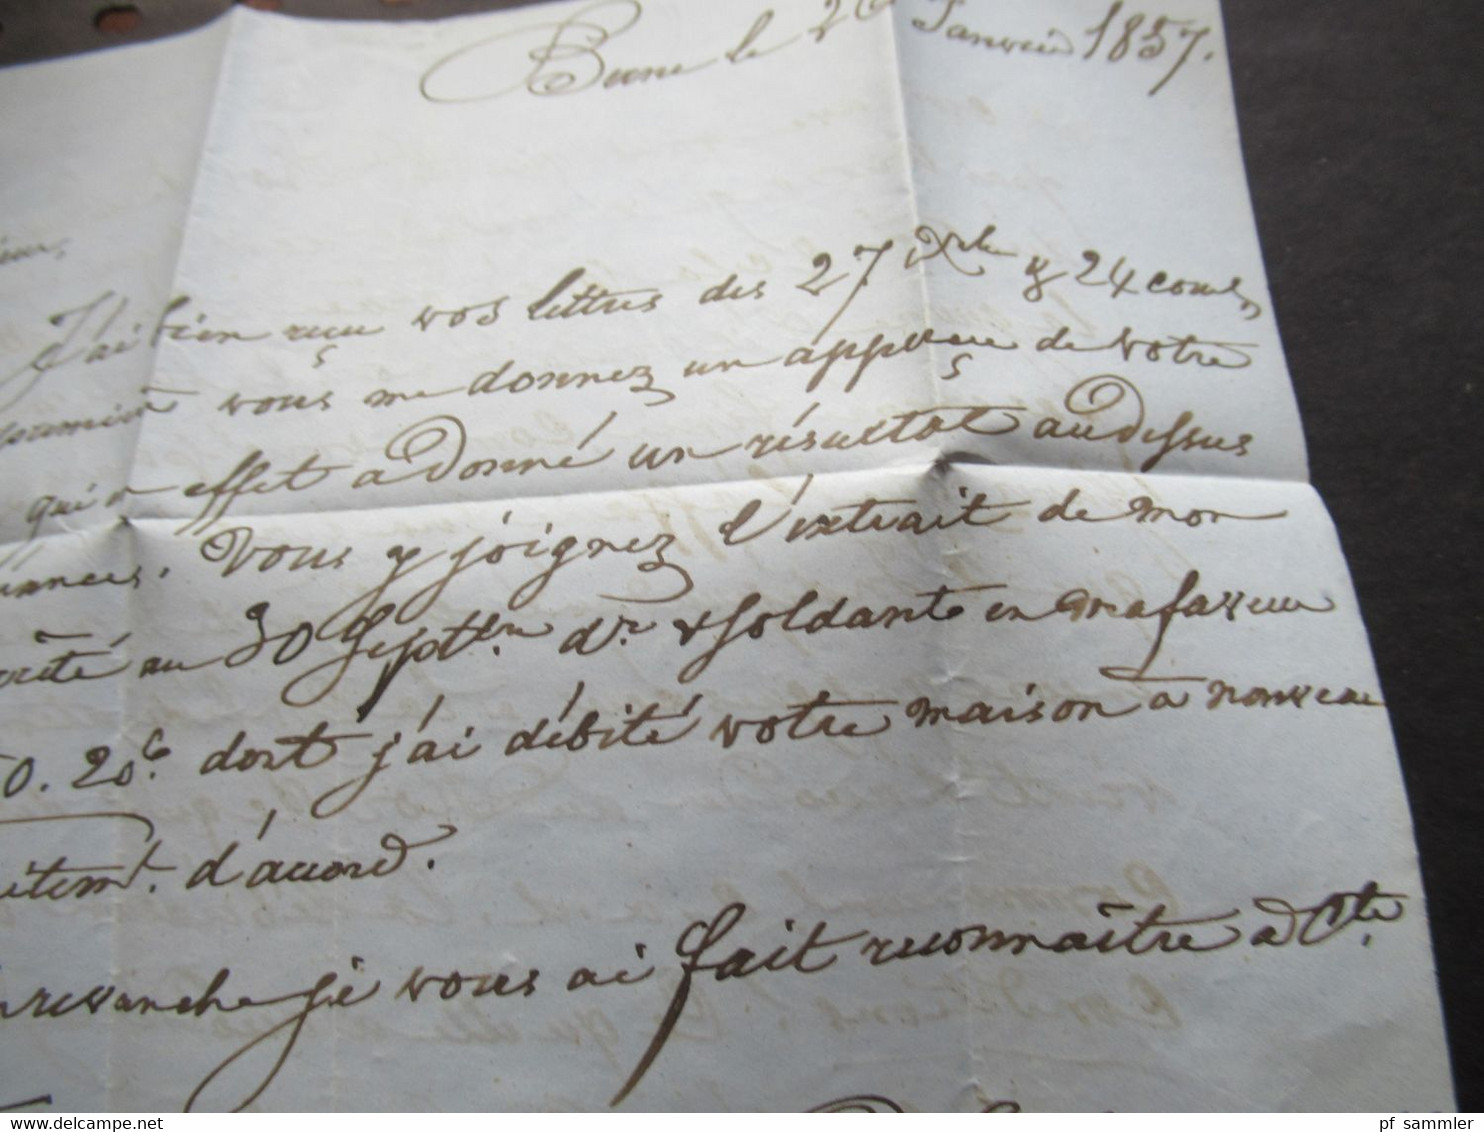 Berne le 26 Janvier 1857.
J'ai bien reçu vos lettres des 27. Xbre & 24 cour,
vous me donnez un apperçu de votre
qui en effet a donné un résultat au dessus
Vous y joignez l'extrait de mon
au 30 Septbr. dr. & soldant en ma faveur
0. 20 c. dont j'ai débité votre maison à nouveau
d'accord.
revanche je vous ai fait reconnaître à Cte
pf_sammler